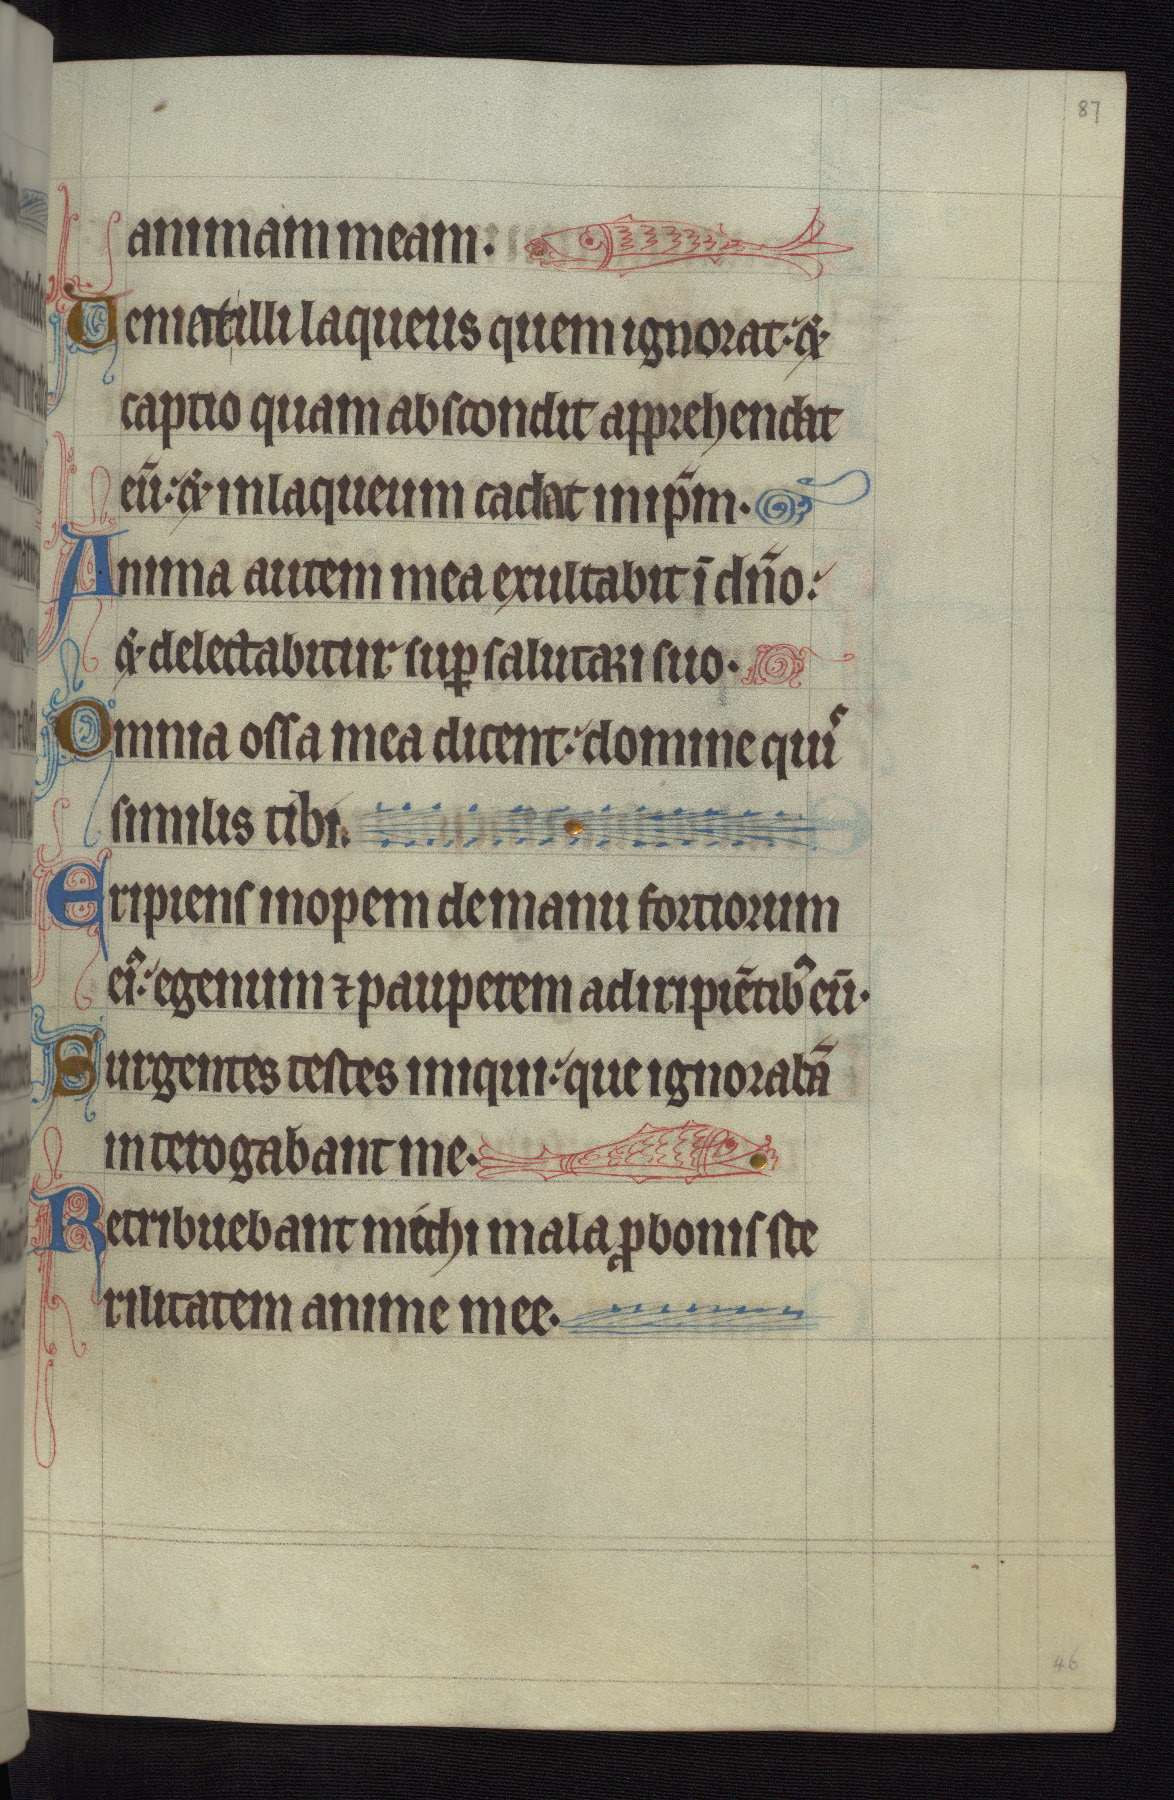 87
animam meam.
Veniat illi laqueus quem ignorat: &
captio quam abscondit apprehendat
eū: & in laqueum cadat in ip̄m.
Anima autem mea exultabit ī dn̄o:
& delectabitur sup̱ salutari suo.
Omnia ossa mea dicent: domine quiˢ
similis tibi.
Eripiens inopem de manu fortiorum
eiꝰ: egenum ⁊ pauperem a diripiētibꝰ eū.
Surgentes testes iniqui: que ignorabā
interogabant me.
Retribuebant michi mala ꝓ bonis ste
rilitatem anime mee.
46